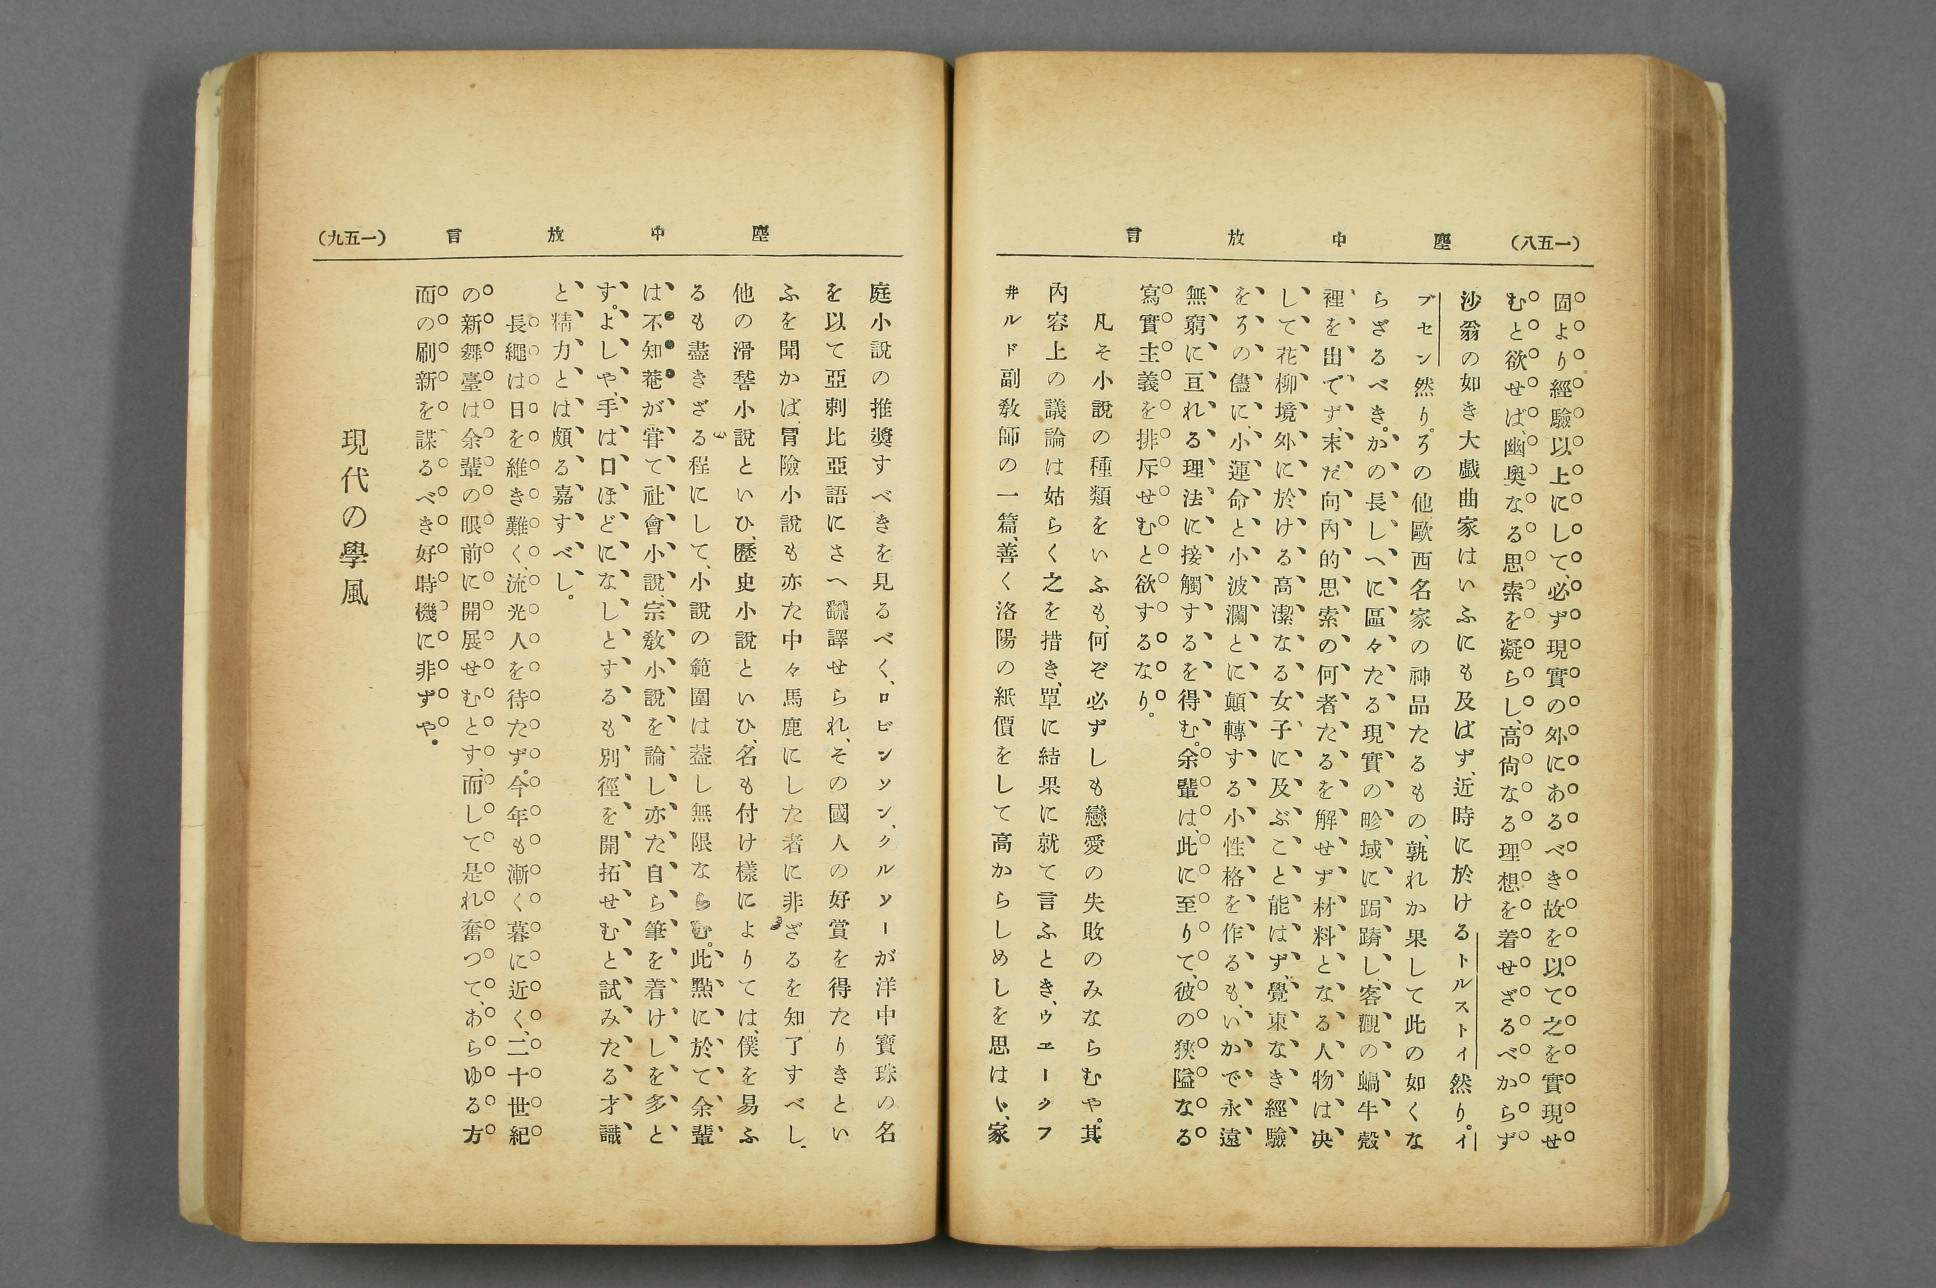 (一五八) 塵中放言
固より經驗以上にして、必ず現實の外にあるべき故を以て之を實現せ
むと欲せば、幽奧なる思索を凝らし、高尙なる理想を着せざるべからず
沙翁の如き大戲曲家はいふにも及ばず、近時に於けるトルストイ然り。イ
ブセン然り。その他歐西名家の神品たるもの、孰れか果して此の如くな
らざるべき。かの長しへに區々たる現實の畛域に跼蹐し、客觀の蝸牛殼
裡を出でず、未だ向內的思索の何者たるを解せず材料となる人物は决
して花柳境外に於ける高潔なる女子に及ぶこと能はず、覺束なき經驗
をその儘に、小運命と小波瀾とに顚轉する小性格を作るも、いかで永遠
無窮に亘れる理法に接觸するを得む。余輩は、此に至りて、彼の狹隘なる
寫實主義を排斥せむと欲するなり。
凡そ小說の種類をいふも、何ぞ必ずしも戀愛の失敗のみならむや。其
內容上の議論は姑らく之を措き、單に結果に就て言ふとき、ウヱークフ
ヰルド副敎師の一篇、善く洛陽の紙價をして高からしめしを思はゝ、家
(一五九) 塵中放言
庭小說の推奬すべきを見るべく、ロビンソン、クルソーが洋中寶珠の名
を以て亞剌比亞語にさへ飜譯せられ、その國人の好賞を得たりきとい
ふを聞かば、冒險小說も亦た中々馬鹿にした者に非ざるを知了すべし、
他の滑稽小說といひ、歷史小說といひ、名も付け樣によりては、僕を易ふ
るも盡きざる程にして、小說の範圍は蓋し無限ならむ。此點に於て余輩
は、不知菴が甞て社會小說、宗敎小說を論し亦た自ら筆を着けしを多と
す。よしや手は口ほどになしとするも別徑を開拓せむと試みたる才識
と精力とは頗る嘉すべし。
長繩は日を維き難く、流光人を待たず。今年も漸く暮に近く、二十世紀
の新舞臺は余輩の眼前に開展せむとす、而して是れ奮つて、あらゆる方
面の刷新を謀るべき好時機に非ずや。
現代の學風